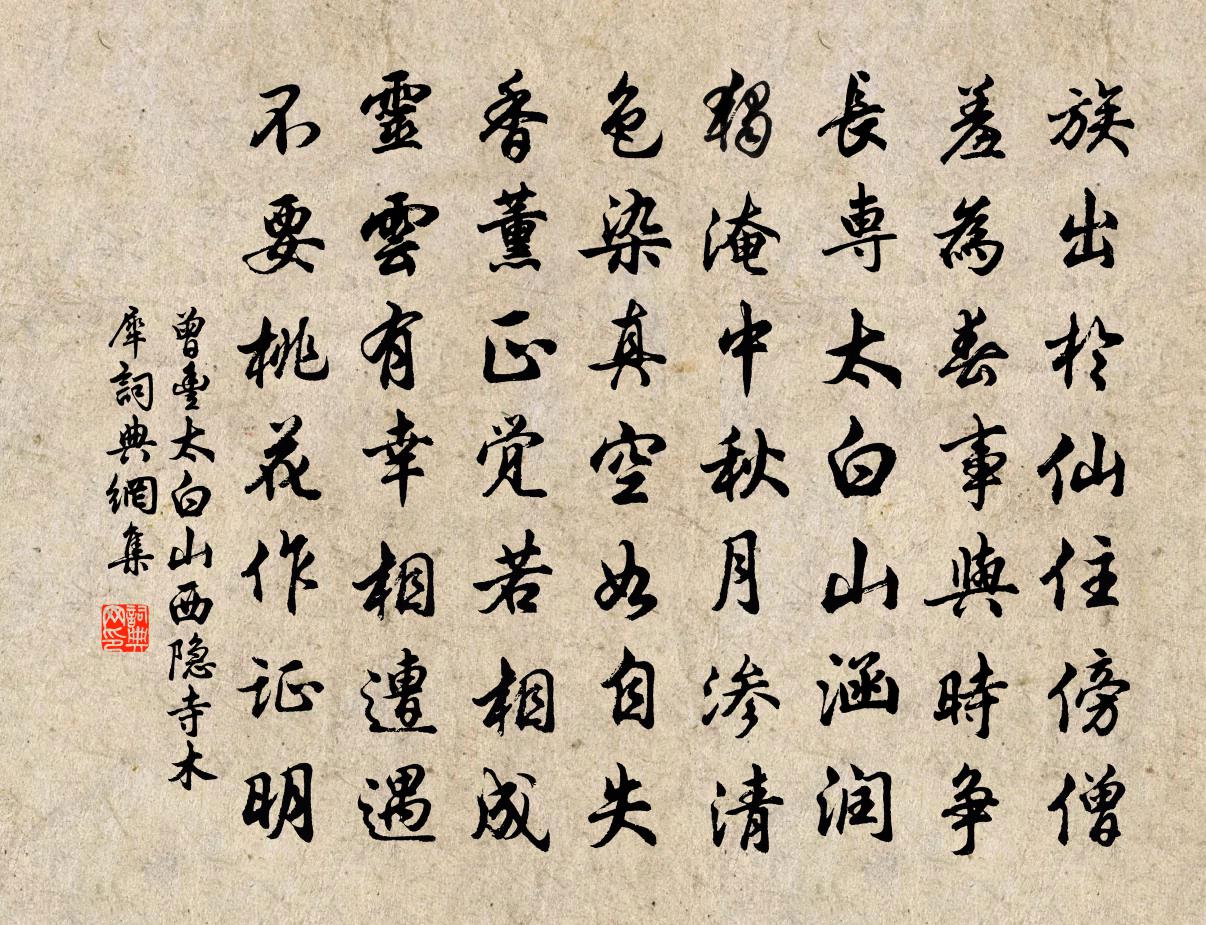 族出於仙住傍僧
羞為春事與時争
長專太白山涵润
獨淹中秋月渗清
色染真空如自失
香薰正觉若相成
靈雲有幸相遭遇
不要桃花作证明
曾豐太白山西隐寺木
犀詞典網集
詞典網印